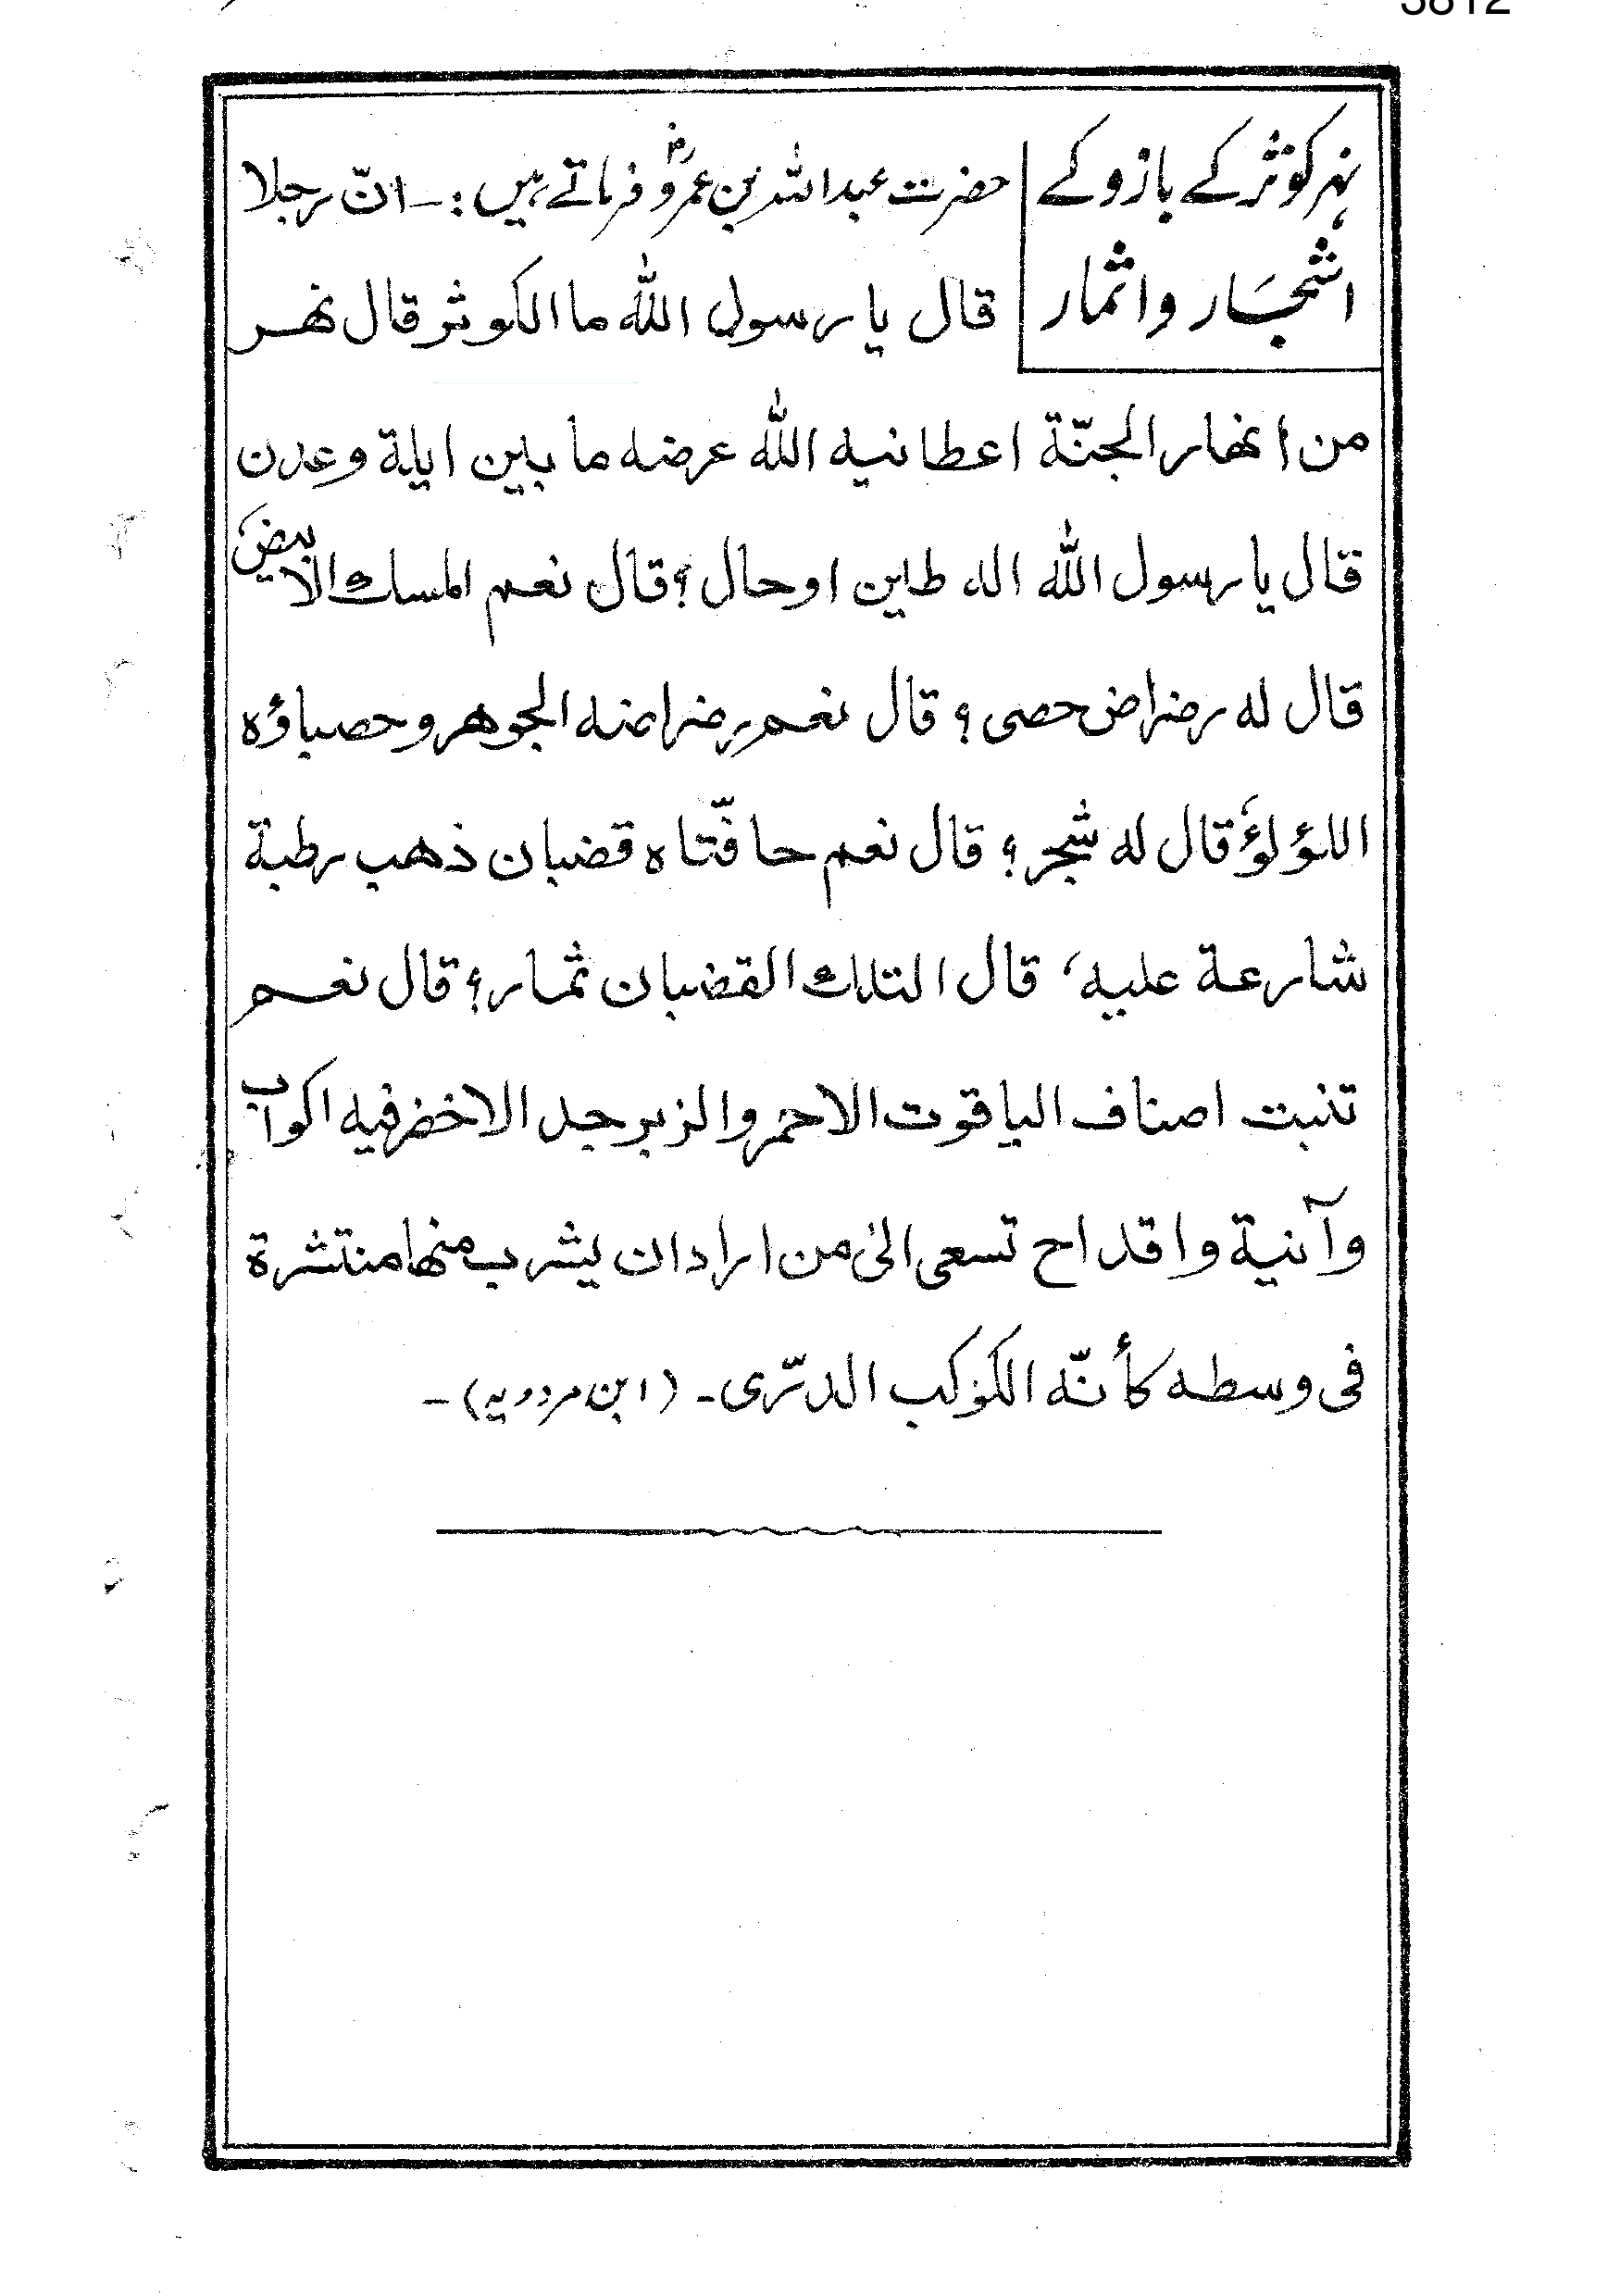 نہر کوثر کے بازو کے
اشجار واثمار
حضرت عبداللہ بن عمرؓو فرماتے ہیں :ـ انّ رجلا
قال یا رسول اللّٰه ما الکوثر قال نهر
من أنهار الجنّة اعطانیه اللّٰه عرضه ما بین ایلة وعدن
قال یا رسول اللّٰه اله طین اوحال؟ قال نعم المسك الابیض
قال له رضراض حصی؟ قال نعم رضراضه الجوهر وحصباؤه
اللؤلؤ قال له شجر؟ قال نعم حافّتاه قضبان ذهب رطبة
شارعة علیه، قال التلك القضبان ثمار؟ قال نعم
تنبت اصناف الیاقوت الاحمر والزبرجد الاخضر فیه اکواب
وآنیة واقداح تسعی الیٰ من اراد ان یشرب منها منتشرة
فی وسطه کأنّه الکوکب الدرّی۔ (ابن مردویه)۔